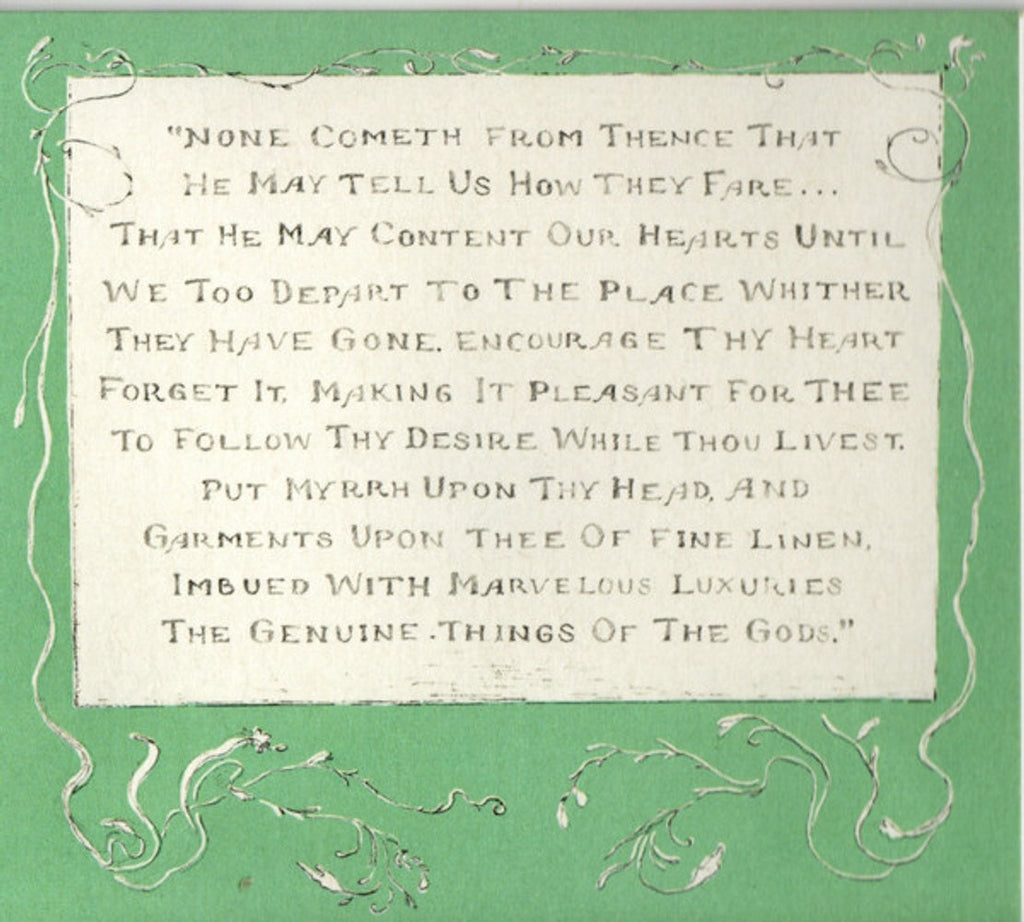 "NONE COMETH FROM THENCE THAT
HE MAY TELL US HOW THEY FARE...
THAT HE MAY CONTENT OUR HEARTS UNTIL
WE TOO DEPART TO THE PLACE WHITHER
THEY HAVE GONE. ENCOURAGE THY HEART
FORGET IT, MAKING IT PLEASANT FOR THEE
TO FOLLOW THY DESIRE WHILE THOU LIVEST.
PUT MYRRH UPON THY HEAD, AND
GARMENTS UPON THEE OF FINE LINEN,
IMBUED WITH MARVELOUS LUXURIES
THE GENUINE THINGS OF THE GODS."